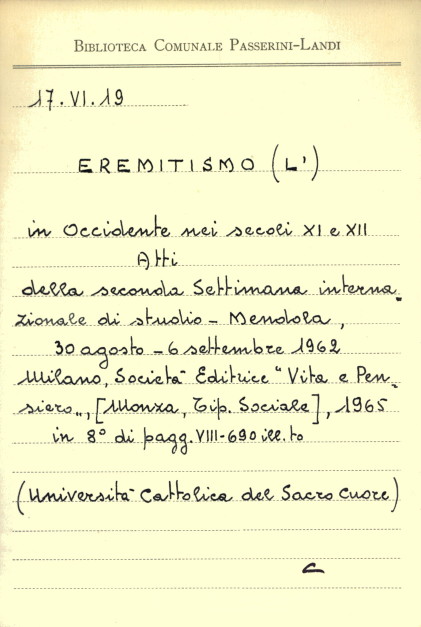 BIBLIOTECA COMUNALE PASSERINI-LANDI
17.VI.19
EREMITISMO (L')
in Occidente nei secoli XI e XII
Atti
della seconda Settimana interna-
zionale di studio - Mendola,
30 agosto - 6 settembre 1962
Milano, Società Editrice "Vita e Pen-
siero", [Monza, Tip. Sociale], 1965
in 8° di pagg. VIII-690 ill.to
(Università Cattolica del Sacro Cuore)
C